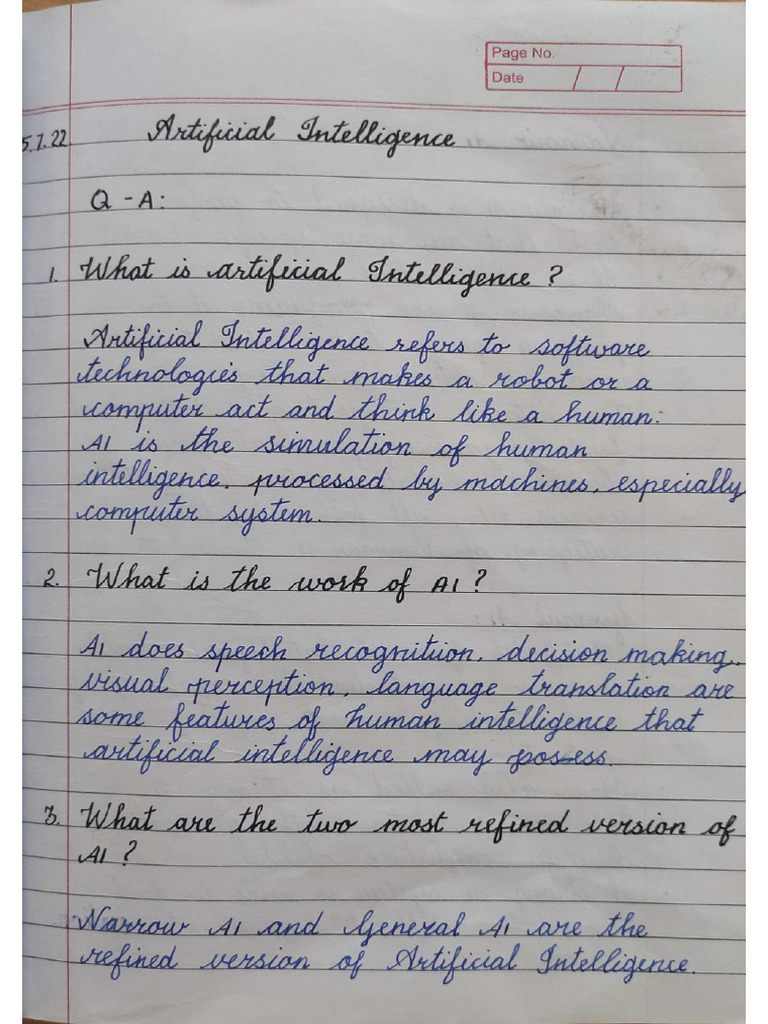 Page No.
Date / /
5.7.22 Artificial Intelligence
Q - A:
1. What is artificial Intelligence ?
Artificial Intelligence refers to software
technologies that makes a robot or a
computer act and think like a human:
AI is the simulation of human
intelligence, processed by machines, especially
computer system.
2. What is the work of AI ?
AI does speech recognitiion, decision making,
visual perception, language translation are
some features of human intelligence that
artificial intelligence may posess.
3. What are the two most refined version of
AI ?
Narrow AI and General AI are the
refined version of Artificial Intelligence.